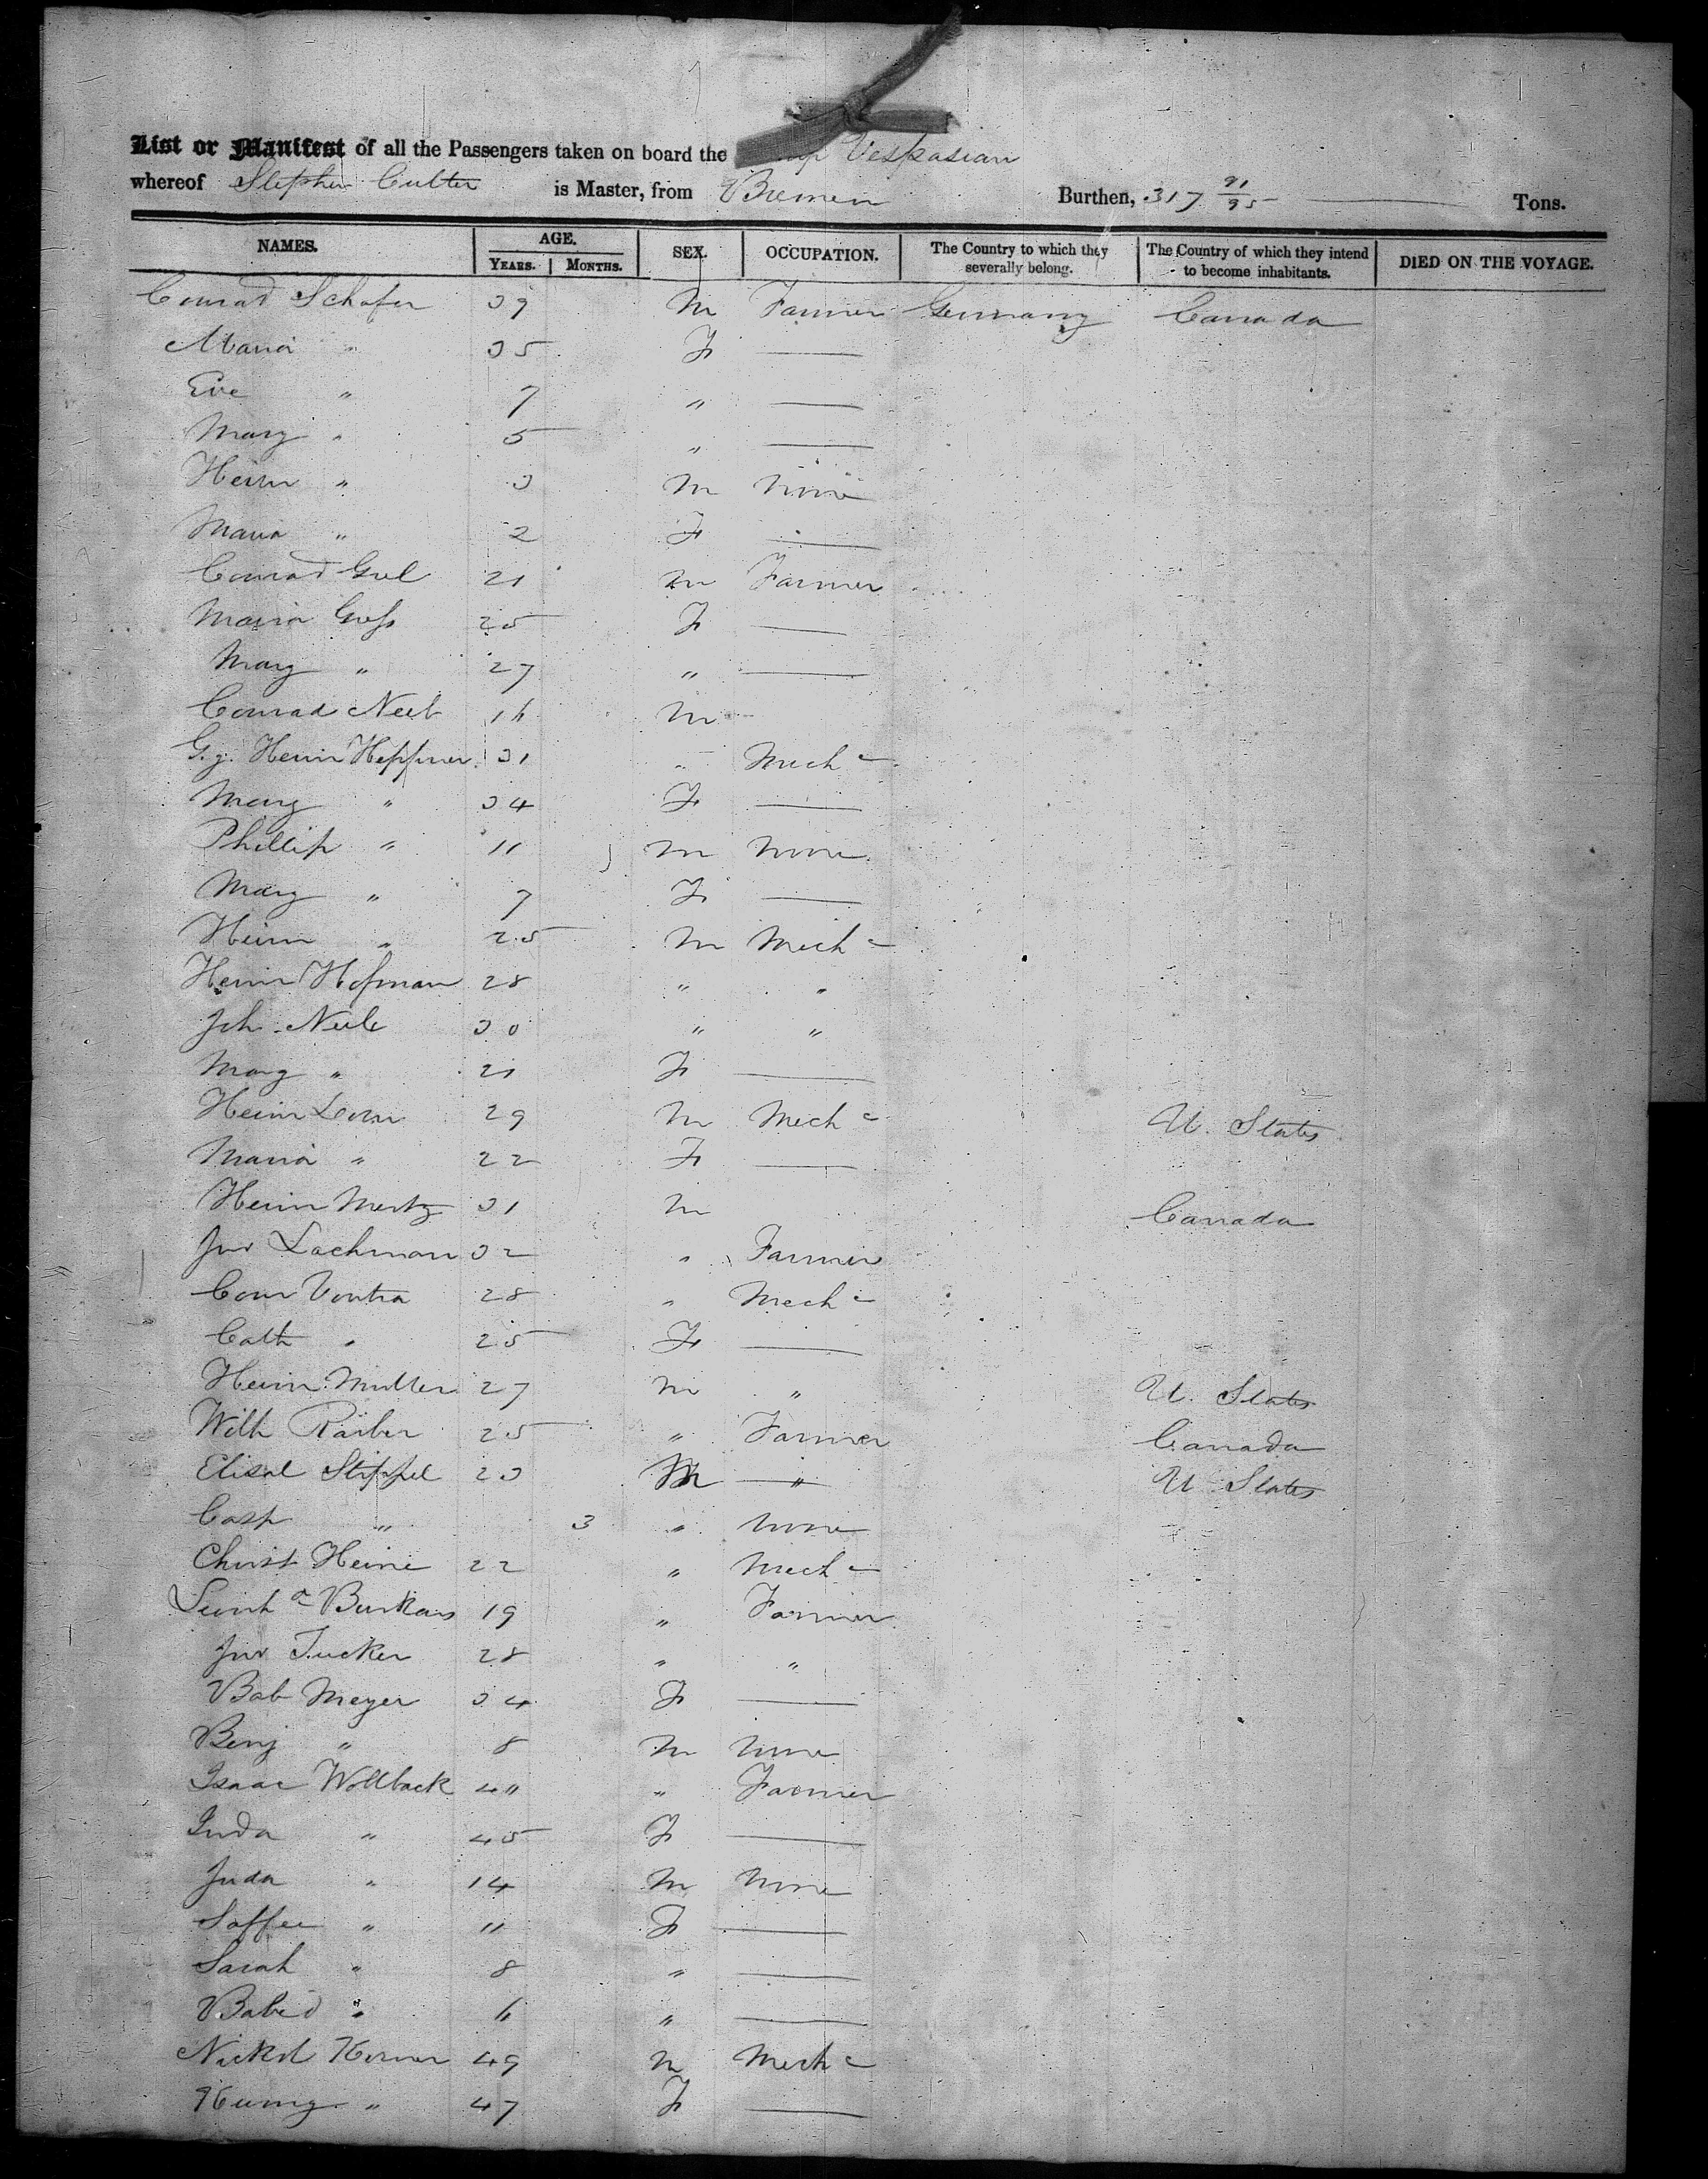 List or Manifest of all the Passengers taken on board the Ship Vespasian
whereof Stephen Culter is Master, from Bremen Burthen, 317 91/95 Tons.
NAMES. AGE. YEARS. MONTHS. SEX. OCCUPATION. The Country to which they severally belong. The Country of which they intend to become inhabitants. DIED ON THE VOYAGE.
Conrad Schafer 39 M Farmer Germany Canada
Maria " 35 F —
Eve " 7 " —
Marg " 5 " —
Heinr " 3 M None
Maria " 2 F —
Conrad 21 M Farmer
Maria 25 F —
Marg " 27 " —
Conrad Neeb 16 M
G. g. Heinr Heppner 31 " Mech c
Marg " 34 F —
Phillip " 11 M None
Marg " 7 F —
Heinr " 25 M Mech c
Heinr Hofman 28 " "
Joh. Neeb 30 " "
Marg " 21 F —
Heinr 29 M Mech c U. States
Maria " 22 F —
Heinr Mertz 31 M Canada
Jno Lachman 32 " Farmer
28 " Mech c
Cath " 25 F —
Heinr. Muller 27 M " U. States
Wilh Räiber 25 " Farmer Canada
Elisal Stippel 23 M " U States
Casp " 3 " None
Christ Heine 22 " Mech c
19 " Farmer
Jno Tucker 28 " "
Bab Meyer 34 F —
Benj " 8 M None
Isaac Wollback 40 " Farmer
" 45 F —
Juda " 14 M None
Soffee " 11 F —
Sarah " 8 " —
" 6 " —
Nickol Korner 49 M Mech c
" 47 F —